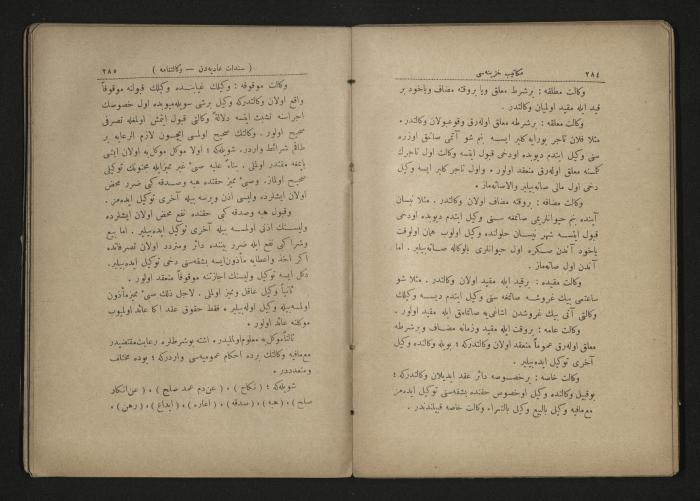 ٢٨٤
مكاتيب خزينه‌سى
وكالت مطلقه : برشرط معلق ويا بروقته مضاف وياخود بر
قيد ايله مقيد اولميان وكالتدر .
وكالت معلقه : برشرطه معلق اوله‌رق وقوعبولان وكالتدر .
مثلا فلان تاجر بورايه كلير ايسه بنم شو آتمى صاتمق اوزره
سنى وكيل ايتدم ديوبده اودخى قبول ايتسه وكالت اول تاجرك
كلمسنه معلق اوله‌رق منعقد اولور . واول تاجر كلير ايسه وكيل
دخى اول مالى صاته‌بيلير والاصاته‌ماز .
وكالت مضافه : بروقته مضاف اولان وكالتدر . مثلا نيسان
آينده بنم حيوانلريمى صاتمغه سنى وكيل ايتدم ديوبده اودخى
قبول ايتسه شهر نيسان حلولنده وكيل اولوب همان اولوقت
ياخود آندن صكره اول حيوانلرى بالوكاله صاته‌بيلير . اما
آندن اول صاته‌ماز .
وكالت مقيده : برقيد ايله مقيد اولان وكالتدر . مثلا شو
ساعتمى بيك غروشه صاتمغه سنى وكيل ايتدم ديسه وكيلك
وكالتى آنى بيك غروشدن اشاغى‌يه صاتمامق ايله مقيد اولور .
وكالت عامه : بروقت ايله مقيد وزمانه مضاف وبرشرطه
معلق اوله‌رق عموماً منعقد اولان وكالتدركه ؛ بويله وكالتده وكيل
آخرى توكيل ايده‌بيلير .
وكالت خاصه : برخصوصه دائر عقد ايديلان وكالتدركه ؛
بوقبيل وكالتده وكيل اوخصوص حقنده بشقه‌سنى توكيل ايده‌مز
مع‌مافيه وكيل بالبيع وكيل بالشراء وكالت خاصه قبيلندندر .
( سندات عاديه‌دن — وكالتنامه )
٢٨٥
وكالت موقوفه : وكيلك غيابنده وكيلك قبولنه موقوفاً
واقع اولان وكالتدركه وكيل برشى سويله‌ميوبده اول خصوصك
اجراسنه تشبث ايتسه دلالةً وكالتى قبول ايتمش اولمغله تصرفى
صحيح اولور . وكالتك صحيح اولمسى ايچون لازم الرعايه بر
طاقم شرائط واردر . شويله‌كه ؛ اولا موكل موكل‌به اولان ايشى
ياپمغه مقتدر اولملى . بناءً عليه صبىء غير مميزايله مجنونك توكيلى
صحيح اولماز . وصبىء مميز حقنده هبه وصدقه كبى ضرر محض
اولان ايشلرده وليسى اذن ويرسه بيله آخرى توكيل ايده‌مز .
وقبول هبه وصدقه كبى حقنده نفع محض اولان ايشلرده
وليسنك اذنى اولمسه بيله آخرى توكيل ايده‌بيلير . اما بيع
وشرا كبى نفع ايله ضرر بيننده دائر ومتردد اولان تصرفاتده
اكر اخذ واعطايه مأذون‌ايسه بشقه‌سنى دخى توكيل ايده‌بيلير .
دكل ايسه توكيل وليسنك اجازتنه موقوفاً منعقد اولور .
ثانياً وكيل عاقل ومميز اولملى . لاجل ذلك صبىء مميزمأذون
اولمسه‌بيله وكيل اوله‌بيلير . فقط حقوق عقد اكا عائد اولميوب
موكلنه عائد اولور .
ثالثاً موكل‌به معلوم‌اولمليدر . اشته بوشرطلره رعايت‌مقتضيدر
مع‌مافيه وكالتك برده احكام عموميه‌سى واردركه ؛ بوده مختلف
ومتعدددر .
شويله‌كه ؛ ( نكاح ) ، ( عن‌دم عمد صلح ) ، ( عن‌انكار
صلح ) ، ( هبه ) ، ( صدقه ) ، ( اعاره ) ، ( ايداع ) ، ( رهن ) ،